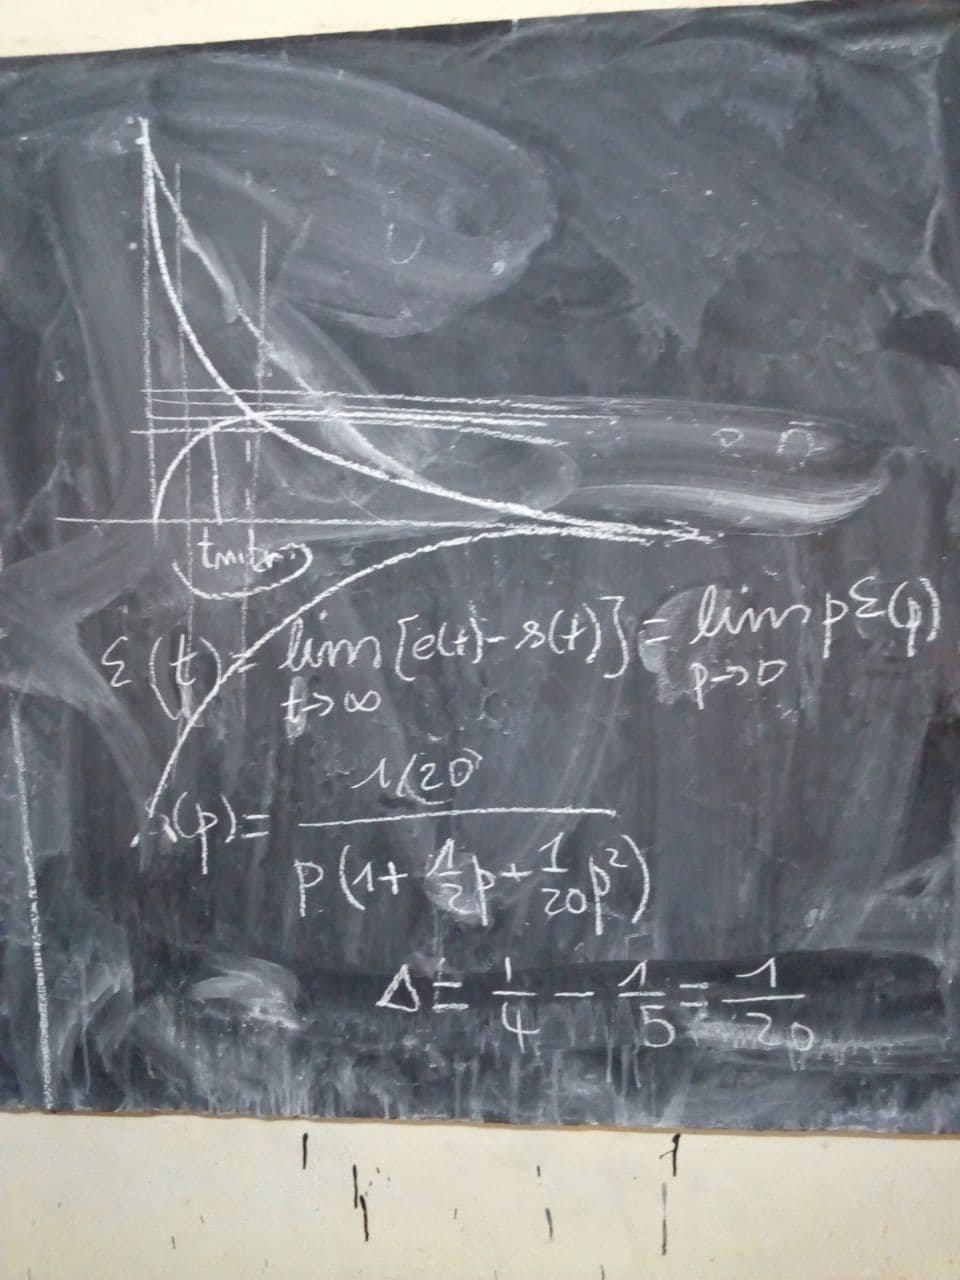 ε(t) = lim [e(t) - s(t)] = lim p ε(p)
t→∞ p→0
(p) = 1/20
p(1 + 1/2 p + 1/20 p²)
Δ = 1/4 - 1/5 = 1/20